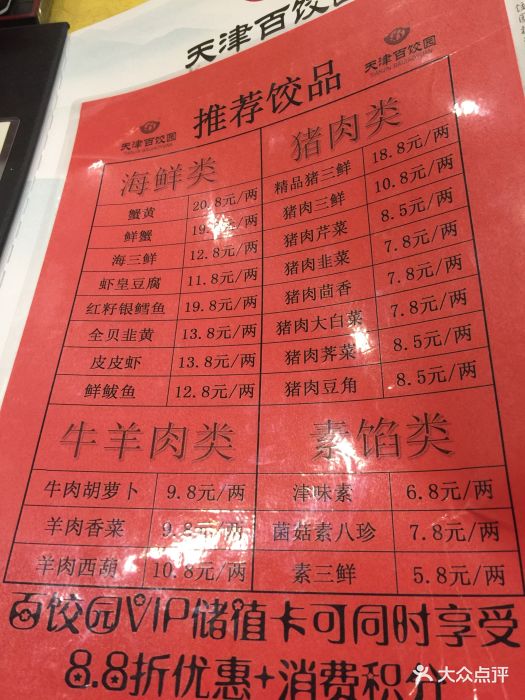 天津百饺园
天津百饺园
天津百饺园
推荐饺品
海鲜类
蟹黄 20.8元/两
鲜蟹 元/两
海三鲜 12.8元/两
虾皇豆腐 11.8元/两
红籽银鳕鱼 19.8元/两
全贝韭黄 13.8元/两
皮皮虾 13.8元/两
鲜鲅鱼 12.8元/两
猪肉类
精品猪三鲜 18.8元/两
猪肉三鲜 10.8元/两
猪肉芹菜 8.5元/两
猪肉韭菜 7.8元/两
猪肉茴香 7.8元/两
猪肉大白菜 7.8元/两
猪肉荠菜 8.5元/两
猪肉豆角 8.5元/两
牛羊肉类
牛肉胡萝卜 9.8元/两
羊肉香菜 9.8元/两
羊肉西葫 10.8元/两
素馅类
津味素 6.8元/两
菌菇素八珍 7.8元/两
素三鲜 5.8元/两
百饺园VIP储值卡可同时享受
8.8折优惠+消费积分
大众点评